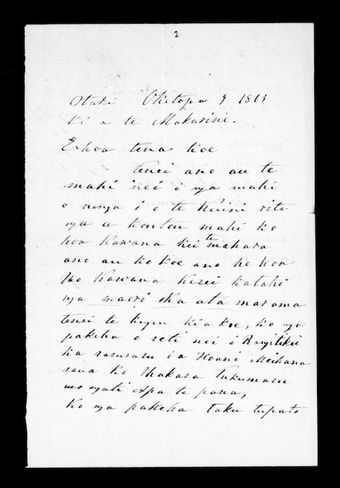 2
Otaki Oketopa 9 1863
Ki a te Makarini.
E hoa tena koe
Tenei ano au te
mahi nei i nga mahi
o runga i o te Kuini rite
nga a koutou mahi ko
hoa Kawana kei te mahara
ano au ko koe ano he hoa
Ko Kawana Kerei katahi
nga maori ka ata marama
tenei te kupu ki a koe, ko nga
pakeha o nei i Rangitikei
ka i a Hoani Meihana
raua ko
te pana,
Ko nga pakeha taku tupato